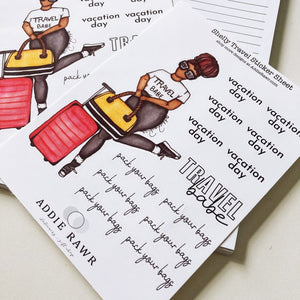 vacation
day
vacation
day
vacation
day
vacation
day
TRAVEL
BABE
TRAVEL
pack your bags
Shelly Travel Sticker Sheet
TRAVEL
BABE
vacation
day
vacation
day
vacation
day
vacation
day
vacation
day
vacation
day
TRAVEL
babe
pack your bags
pack your bags
pack your bags
pack your bags
pack your bags
pack your bags
pack your bags
ADDIE RAWR